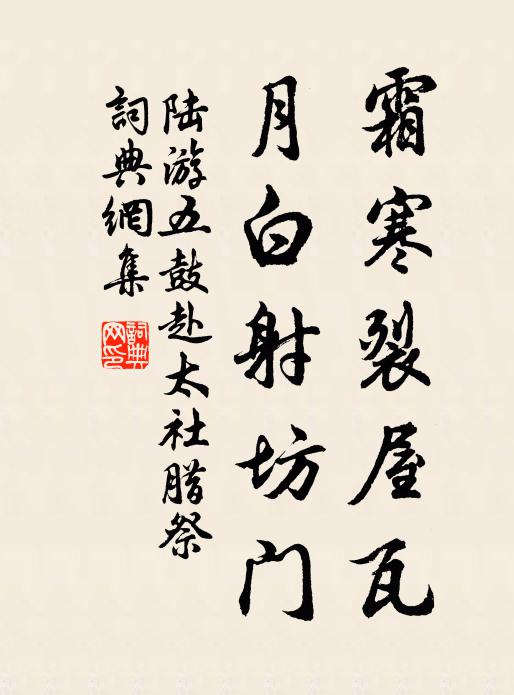 霜寒裂屋瓦
月白射坊门
陆游五鼓赴太社腊祭
詞典網集
詞典网印